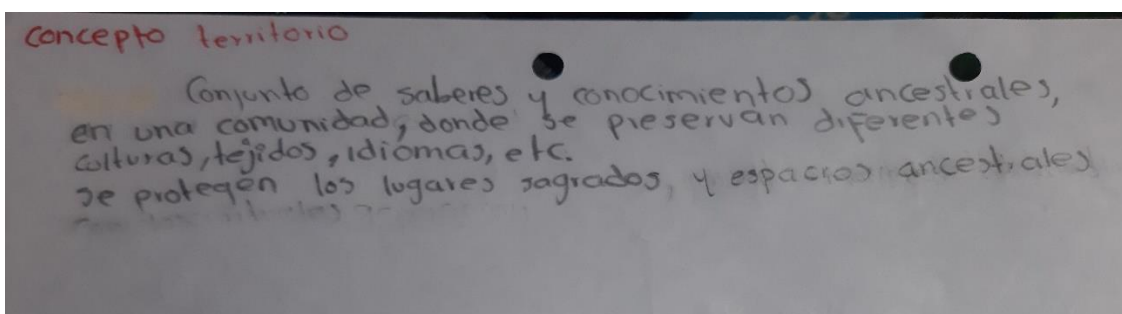 concepto territorio
Conjunto de saberes y conocimientos ancestrales,
en una comunidad, donde se preservan diferentes
culturas, tejidos, idiomas, etc.
se protegen los lugares sagrados, y espacios ancestrales